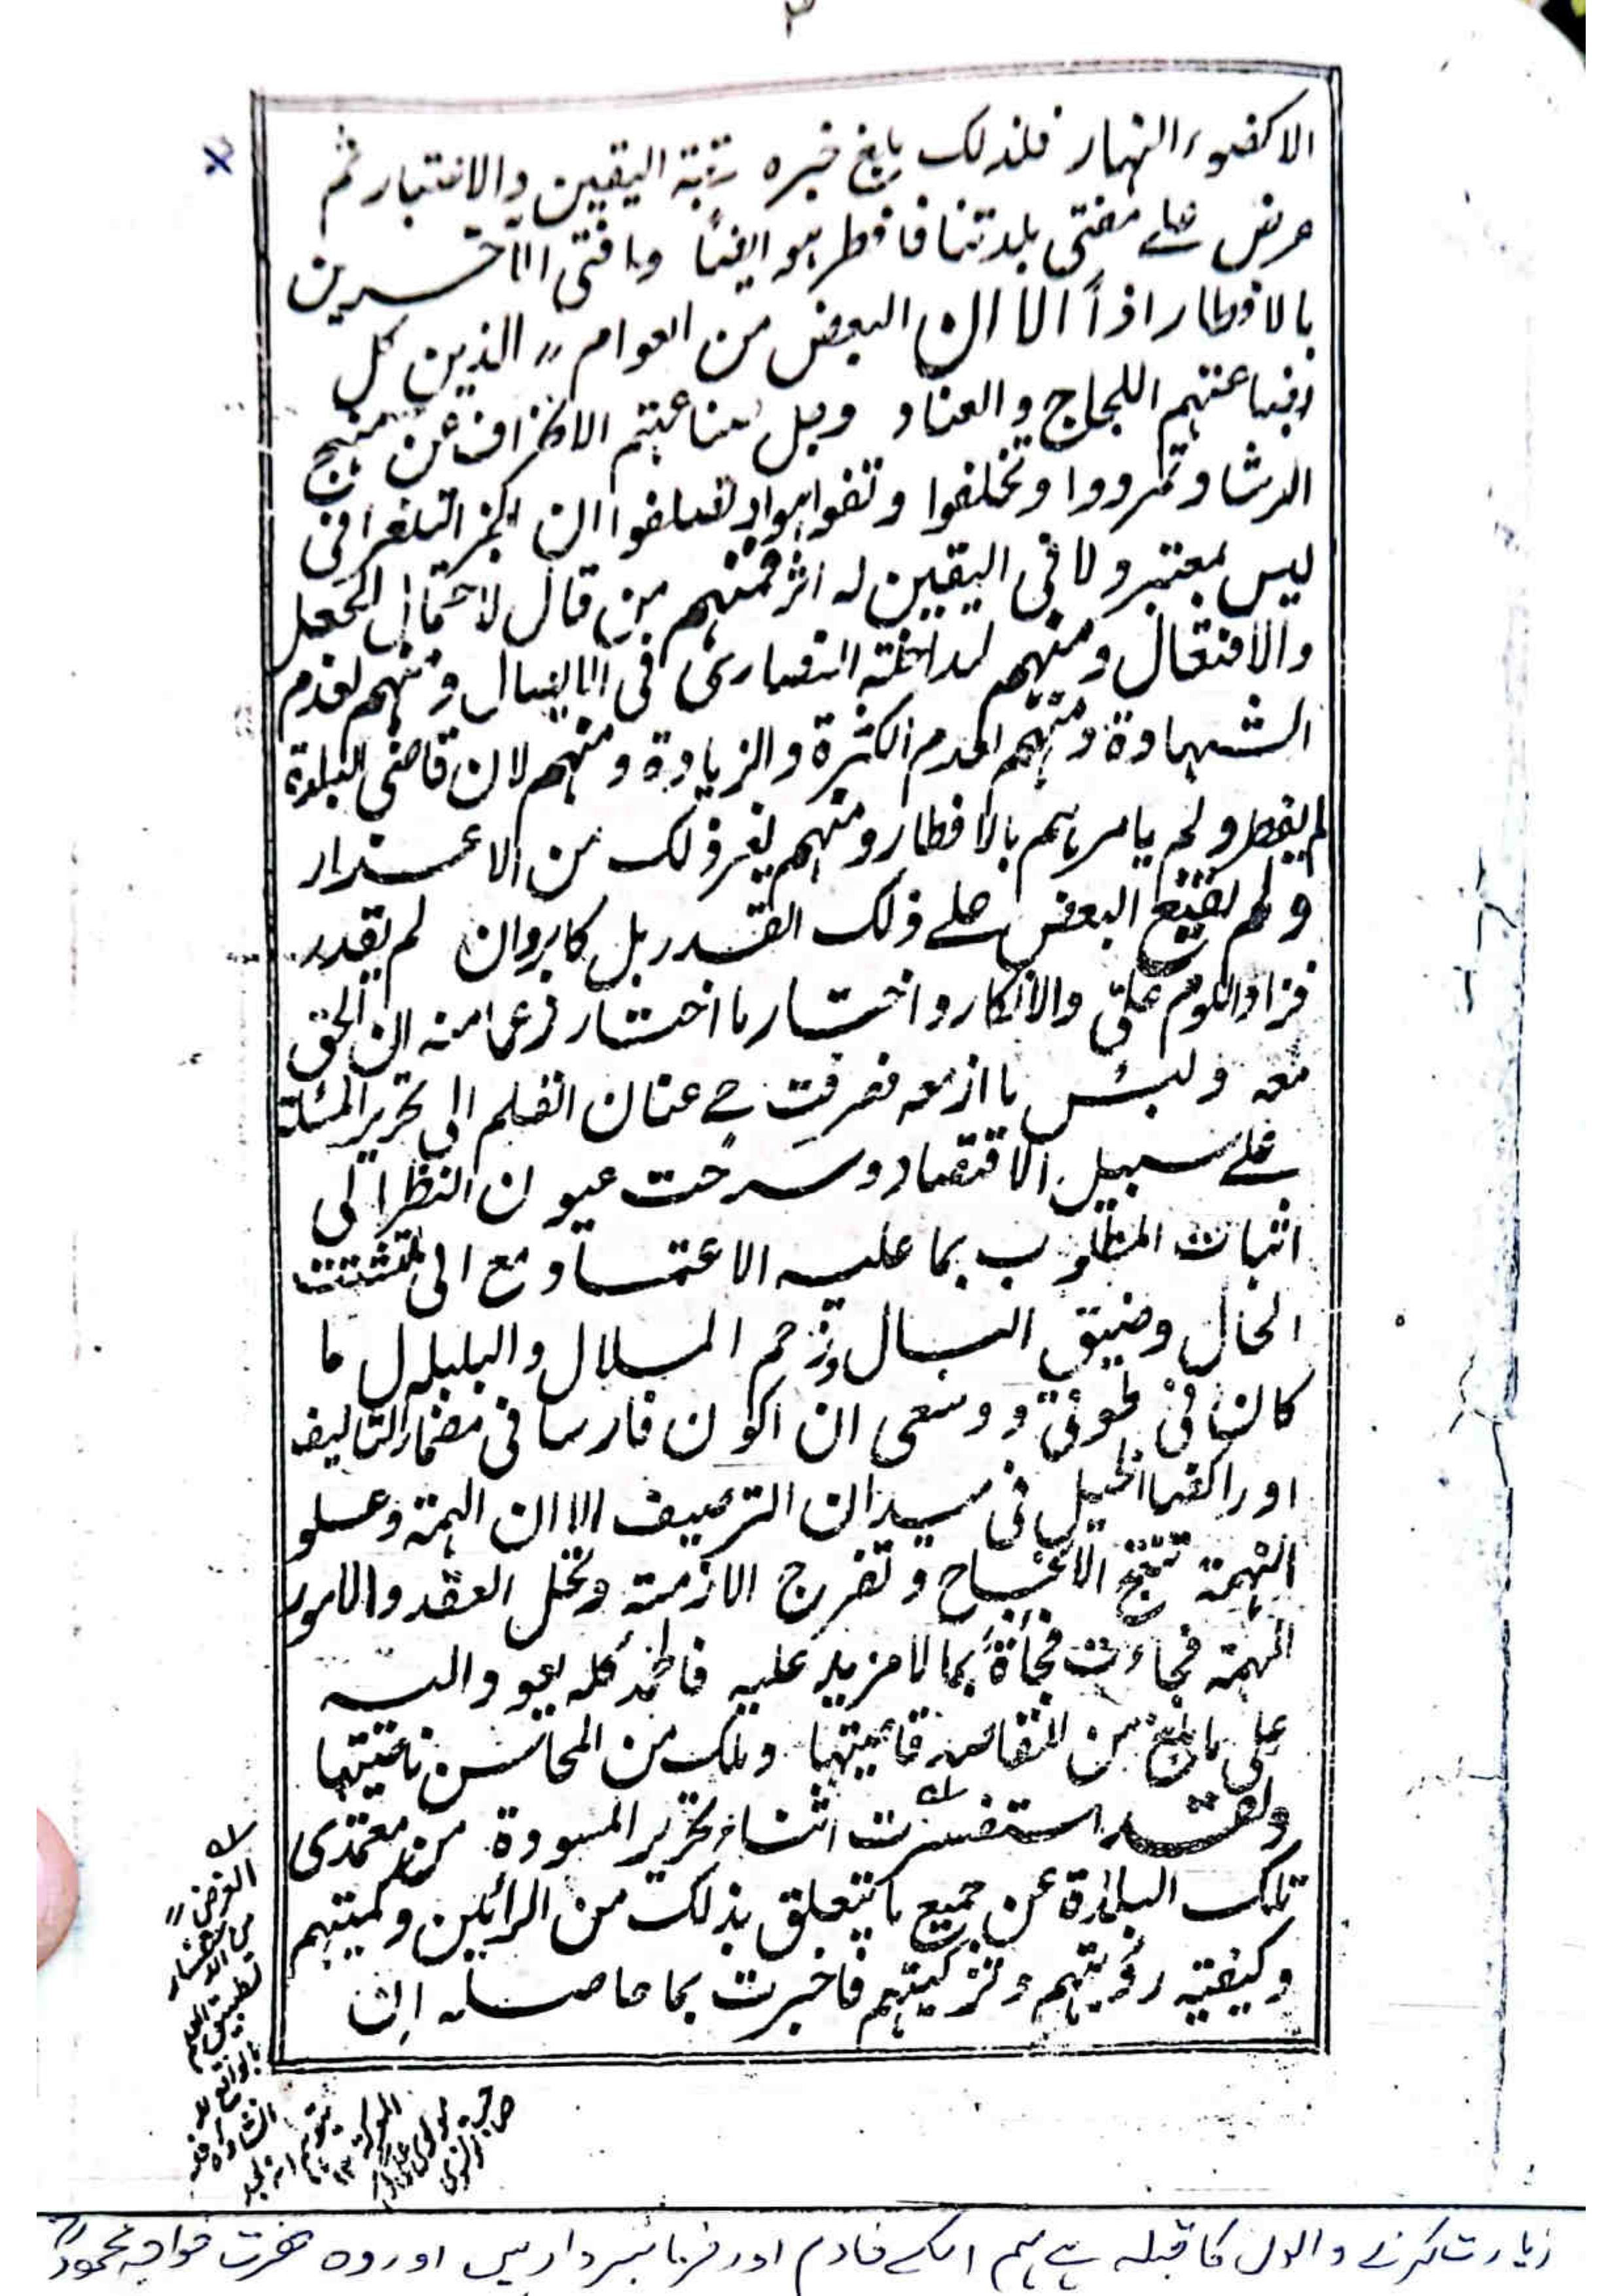 الا كضوء النهار فلذلك بلغ خبره رتبة اليقين والاعتبار ثم
عرض على مفتى بلدتنا فافطر هو ايضاً وافتى الآخرين
بالافطار اذاً الا ان البعض من العوام الذين كل
بضاعتهم اللجاج والعناد وجل صناعتهم الانحراف عن منهج
الرشاد تمردوا وتخلفوا وتفوهوا وتصلفوا ان الخبر التلغرافى
ليس بمعتبر ولا فى اليقين له اثر فمنهم من قال لاحتمال الجعل
والافتعال ومنهم لمداخلة النصارى فى الايصال ومنهم لعدم
الشهادة ومنهم لعدم الكثرة والزيادة ومنهم لان قاضى البلدة
لم يفطر ولم يامرهم بالافطار ومنهم لغير ذلك من الاعذار
ولم يقنع البعض على ذلك القدر بل كابر وان لم يقدر
فزاد اللوم علىّ والانكار واختار ما اختار زعما منه ان الحق
معه ولبئس ما ازمعه فصرفت ح عنان القلم الى تحرير المسئلة
على سبيل الاقتصاد وسرحت عيون النظر الى
اثبات المطلوب بما عليه الاعتماد مع انى لتشتت
الحال وضيق البال وزحم الملال والبلبال ما
كان فى وسعى ان اكون فارسا فى مضمار التاليف
او راكضا الخيل فى ميدان الترصيف الا ان الهمة وعلو
النهمة تنتج الانجاح وتفرج الازمة وتحل العقد والامور
المهمة فجاءت فجأة بما لا مزيد عليه فالحمد كله يعود اليه
على ما بلغ من النفاسة قاصيتها وملك من المحاسن ناصيتها
ولقد استفسرت اثناء تحرير المسودة من معتمدى
تلك البلدة عن جميع ما يتعلق بذلك من الرائين وكميتهم
وكيفية رؤيتهم وتزكيتهم فاخبرت بما حاصله ان
الغرض
من الاستفسار
تطبيق العلم
بالواقع لا
زیارت کرنے والوں کا قبلہ ہے ہم اسکے خادم اور فرمانبردار ہیں اور وہ حضرت خواجہ محمود